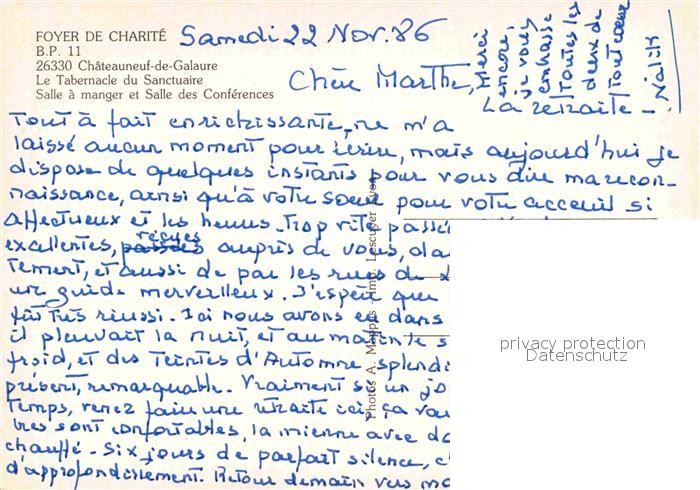 FOYER DE CHARITÉ
B.P. 11
26330 Châteauneuf-de-Galaure
Le Tabernacle du Sanctuaire
Salle à manger et Salle des Conférences
Samedi 22 Nov. 86
Chère Marthe,
La retraite -
Tout à fait enrichissante, ne m'a
laissé aucun moment pour écrire, mais aujourd'hui je
dispose de quelques instants pour vous dire ma recon-
naissance, ainsi qu'à votre soeur pour votre accueil si
affectueux et les heures - Trop vite passé
excellentes, passées reçues auprès de vous, d'a
tement, et aussi de par les rues de
un guide merveilleux. J'espère que
fût très réussi. Ici nous avons eu dans
il pleuvait la nuit, et au matin le s
froid, et des teintes d'Automne splendi
présent, remarquable. Vraiment si un jo
temps, venez faire une retraite ici, ça vau
bres sont confortables, la mienne avec do
chauffé - Six jours de parfait silence, c'
d'approfondissement. Retour demain vers
Merci
encore,
je vous
embrasse
Toutes les
deux de
tout coeur
Photos A. Mappus - Imp. Lescuyer Lyon
privacy protection
Datenschutz